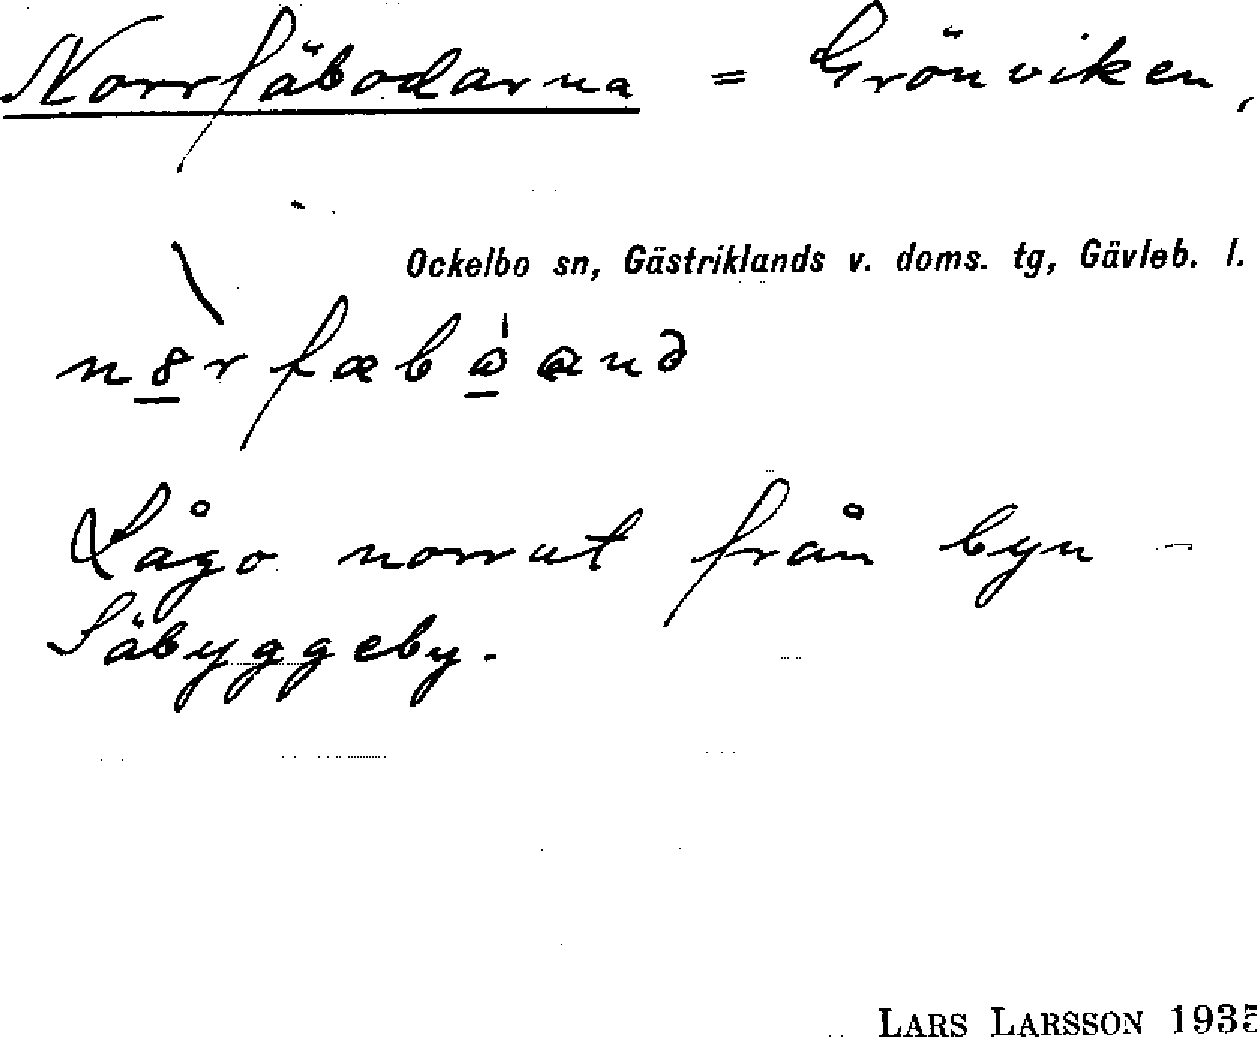 Norrfäbodarna = Grönviken,
Ockelbo sn, Gästriklands v. doms. tg, Gävleb. l.
Lågo norrut från byn –
Säbyggeby.
LARS LARSSON 1935